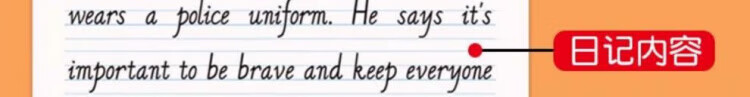 wears a police uniform. He says it's
日记内容
important to be brave and keep everyone